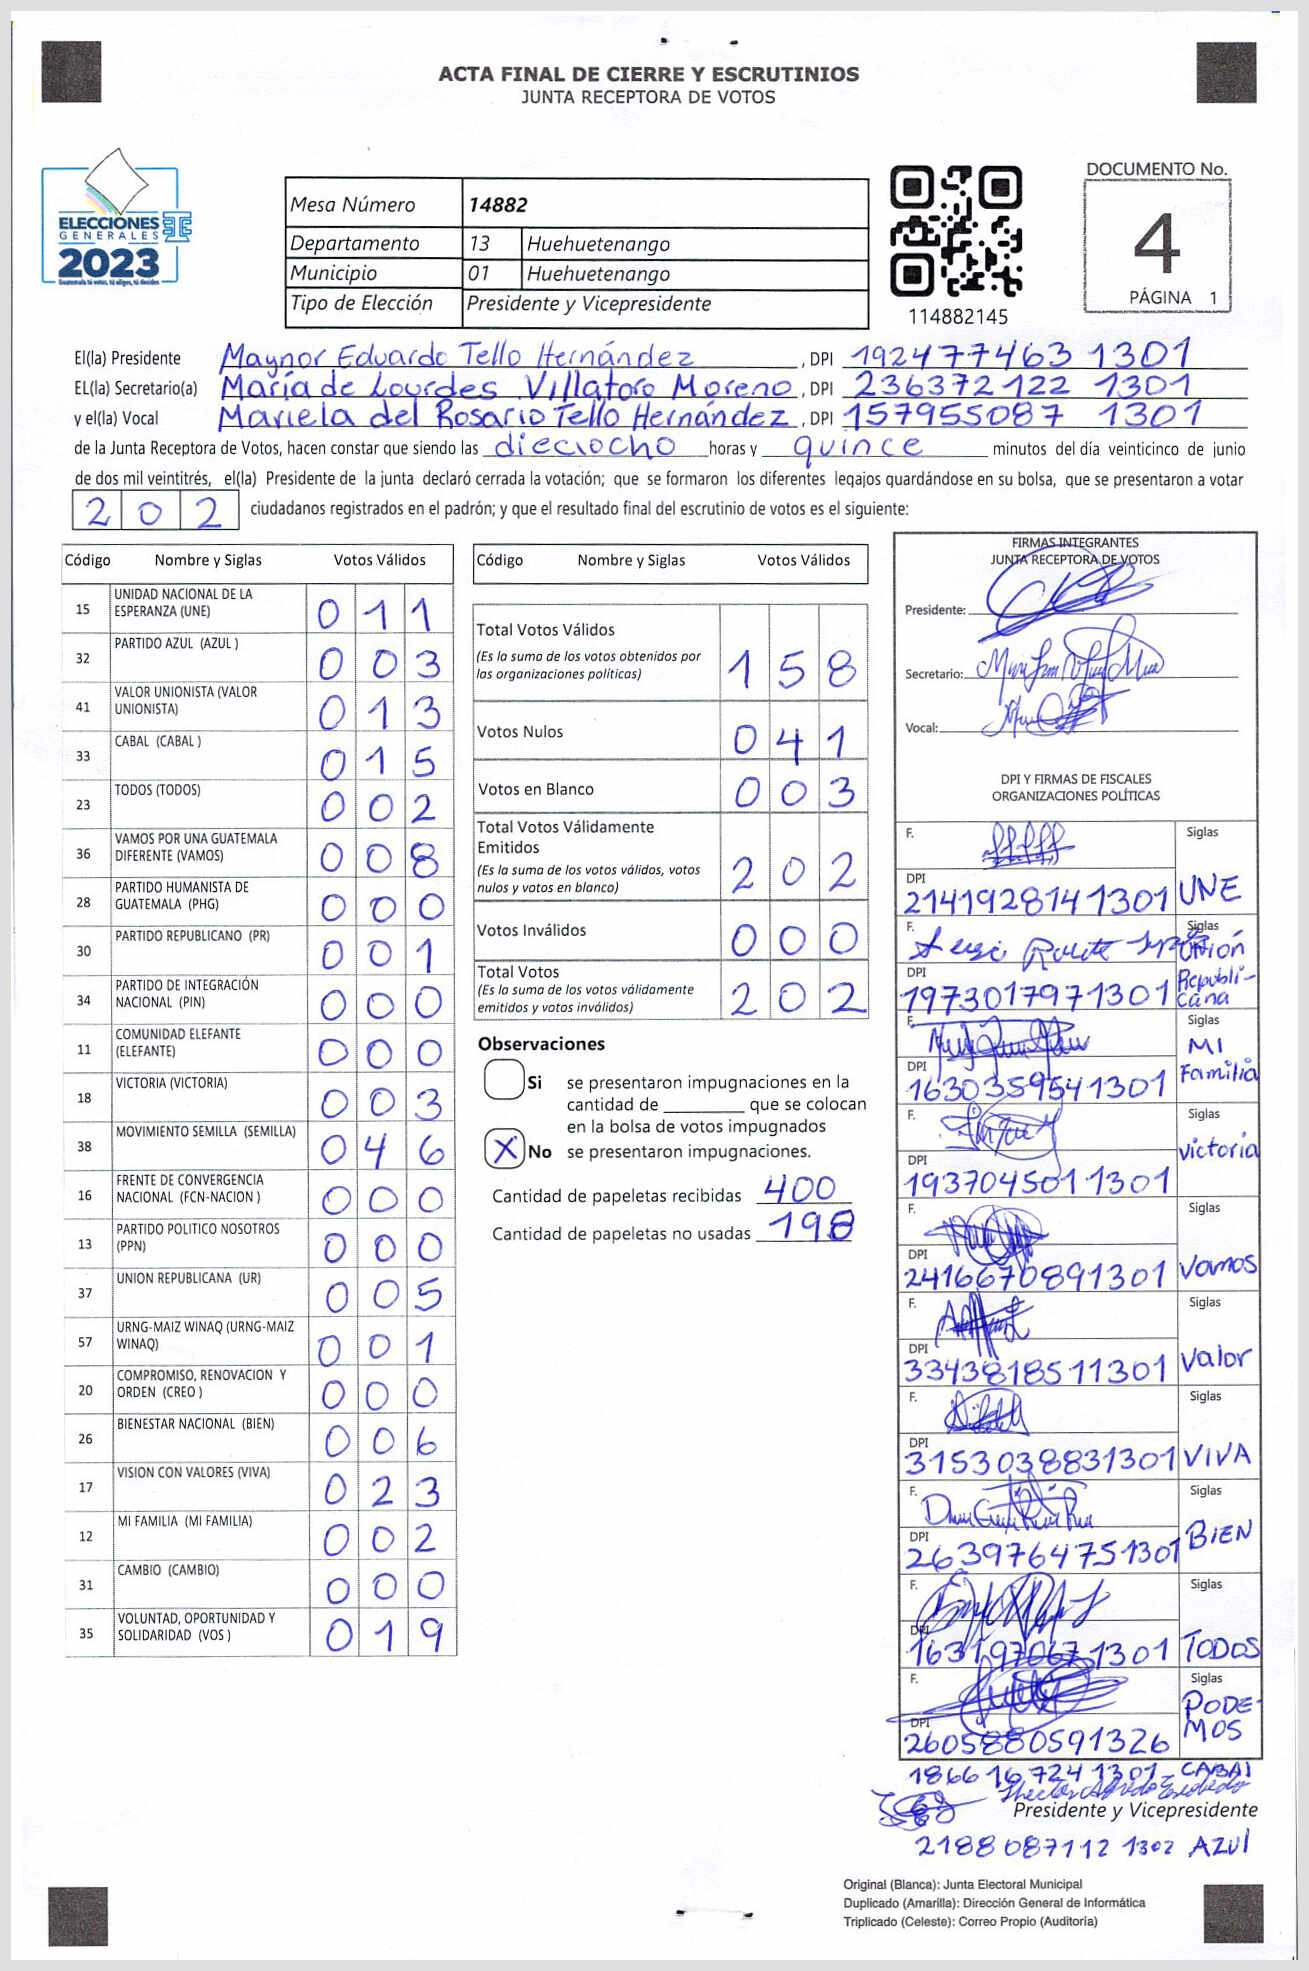 ACTA FINAL DE CIERRE Y ESCRUTINIOS
JUNTA RECEPTORA DE VOTOS
ELECCIONES
GENERALES
2023
Guatemala tú votas, tú eliges, tú decides
Mesa Número 14882
Departamento 13 Huehuetenango
Municipio 01 Huehuetenango
Tipo de Elección Presidente y Vicepresidente
114882145
DOCUMENTO No.
4
PÁGINA 1
El(la) Presidente Maynor Eduardo Tello Hernández, DPI 192477463 1301
EL(la) Secretario(a) María de Lourdes Villatoro Moreno, DPI 236372122 1301
y el(la) Vocal Mariela del Rosario Tello Hernández, DPI 157955087 1301
de la Junta Receptora de Votos, hacen constar que siendo las dieciocho horas y quince minutos del día veinticinco de junio
de dos mil veintitrés, el(la) Presidente de la junta declaró cerrada la votación; que se formaron los diferentes legajos guardándose en su bolsa, que se presentaron a votar
202 ciudadanos registrados en el padrón; y que el resultado final del escrutinio de votos es el siguiente:
Código Nombre y Siglas Votos Válidos
15 UNIDAD NACIONAL DE LA ESPERANZA (UNE) 011
32 PARTIDO AZUL (AZUL ) 003
41 VALOR UNIONISTA (VALOR UNIONISTA) 013
33 CABAL (CABAL ) 015
23 TODOS (TODOS) 002
36 VAMOS POR UNA GUATEMALA DIFERENTE (VAMOS) 008
28 PARTIDO HUMANISTA DE GUATEMALA (PHG) 000
30 PARTIDO REPUBLICANO (PR) 001
34 PARTIDO DE INTEGRACIÓN NACIONAL (PIN) 000
11 COMUNIDAD ELEFANTE (ELEFANTE) 000
18 VICTORIA (VICTORIA) 003
38 MOVIMIENTO SEMILLA (SEMILLA) 046
16 FRENTE DE CONVERGENCIA NACIONAL (FCN-NACION ) 000
13 PARTIDO POLITICO NOSOTROS (PPN) 000
37 UNION REPUBLICANA (UR) 005
57 URNG-MAIZ WINAQ (URNG-MAIZ WINAQ) 001
20 COMPROMISO, RENOVACION Y ORDEN (CREO ) 000
26 BIENESTAR NACIONAL (BIEN) 006
17 VISION CON VALORES (VIVA) 023
12 MI FAMILIA (MI FAMILIA) 002
31 CAMBIO (CAMBIO) 000
35 VOLUNTAD, OPORTUNIDAD Y SOLIDARIDAD (VOS ) 019
Código Nombre y Siglas Votos Válidos
Total Votos Válidos 158
(Es la suma de los votos obtenidos por
las organizaciones políticas)
Votos Nulos 041
Votos en Blanco 003
Total Votos Válidamente
Emitidos 202
(Es la suma de los votos válidos, votos
nulos y votos en blanco)
Votos Inválidos 000
Total Votos 202
(Es la suma de los votos válidamente
emitidos y votos inválidos)
Observaciones
Si se presentaron impugnaciones en la
cantidad de ________ que se colocan
en la bolsa de votos impugnados
X No se presentaron impugnaciones.
Cantidad de papeletas recibidas 400
Cantidad de papeletas no usadas 198
FIRMAS INTEGRANTES
JUNTA RECEPTORA DE VOTOS
Presidente:
Secretario:
Vocal:
DPI Y FIRMAS DE FISCALES
ORGANIZACIONES POLÍTICAS
F. Siglas
DPI
2141928141301 UNE
F. Siglas
Unión
DPI Republi-
1973017971301 cana
F. Siglas
MI
DPI Familia
1630359541301
F. Siglas
Victoria
DPI
1937045011301
F. Siglas
DPI
2416670891301 Vamos
F. Siglas
DPI
3343818511301 Valor
F. Siglas
DPI
3153038831301 VIVA
F. Siglas
BIEN
DPI
2639764751301
F. Siglas
DPI
1631970671301 TODOS
F. Siglas
PODE-
DPI MOS
2605880591326
1866167241301 CABAL
Presidente y Vicepresidente
2188087112 1302 AZUL
Original (Blanca): Junta Electoral Municipal
Duplicado (Amarilla): Dirección General de Informática
Triplicado (Celeste): Correo Propio (Auditoría)